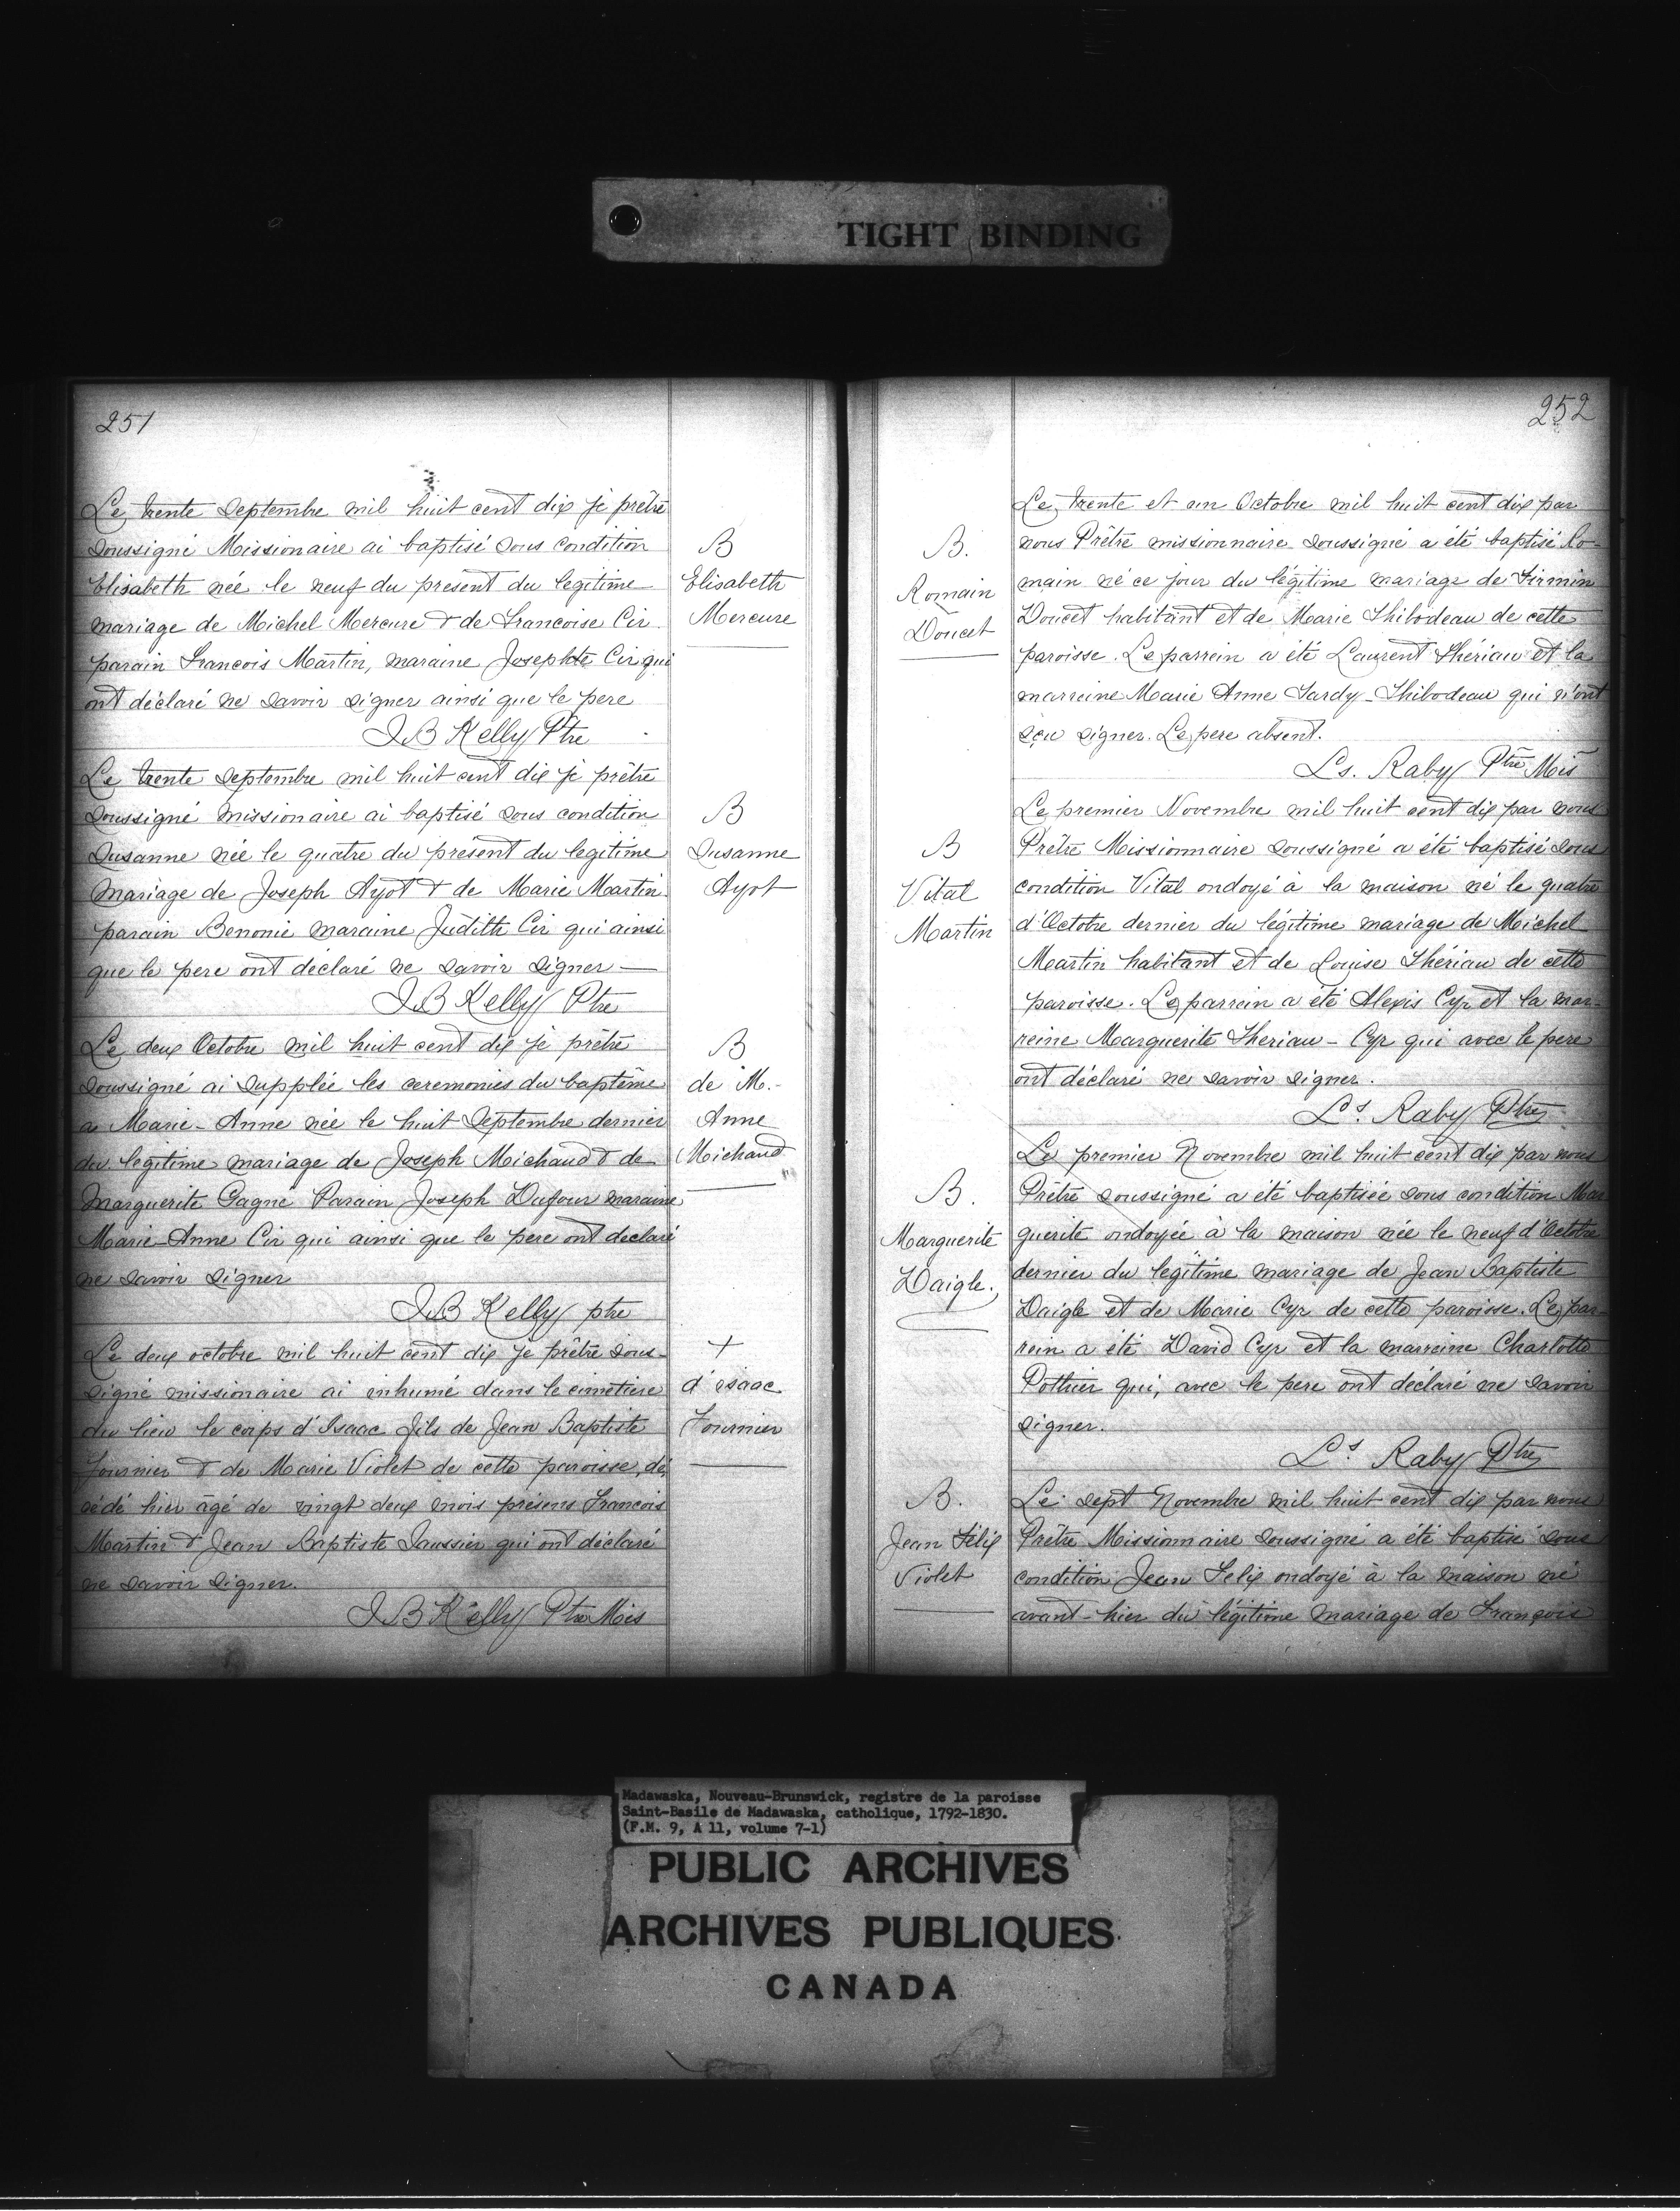 TIGHT BINDING
251
Le trente Septembre mil huit cent dix je prêtre
soussigné Missionaire ai baptisé sous condition
Elisabeth née le neuf du présent du legitime
mariage de Michel Mercure & de Francoise Cir
parain Francois Martin, maraine Josephte Cir qui
ont déclaré ne savoir signer ainsi que le pere
J B Kelly Ptre
B
Elisabeth
Mercure
Le trente Septembre mil huit cent dix je prêtre
soussigné missionaire ai baptisé sous condition
Susanne née le quatre du présent du legitime
mariage de Joseph Ayot & de Marie Martin
parain Benonie maraine Judith Cir qui ainsi
que le pere ont déclaré ne savoir signer —
J B Kelly Ptre
B
Susanne
Ayot
Le deux Octobre mil huit cent dix je prêtre
soussigné ai supplée les ceremonies du baptême
a Marie-Anne née le huit Septembre dernier
du legitime mariage de Joseph Michaud & de
Marguerite Gagné Parain Joseph Dufour maraine
Marie-Anne Cir qui ainsi que le pere ont declaré
ne savoir signer
J B Kelly ptre
B
de M.-
Anne
Michaud
Le deux octobre mil huit cent dix je prêtre sous-
signé missionaire ai inhumé dans le cimetiere
du lieu le corps d'Isaac fils de Jean Baptiste
fournier & de Marie Violet de cette paroisse, dé
cédé hier âgé de vingt deux mois présens Francois
Martin & Jean Baptiste Saussier qui ont déclaré
ne savoir signer.
J B Kelly Ptre Mis
+
d'isaac
Fournier
252
Le trente et un Octobre mil huit cent dix par
nous Prêtre missionnaire soussigné a été baptisé Ro-
main né ce jour du légitime mariage de Firmin
Doucet habitant et de Marie Thibodeau de cette
paroisse. Le parrein a été Laurent Thériau et la
marreine Marie Anne Tardy-Thibodeau qui n'ont
sçu signer. Le pere absent.
Ls. Raby Ptre Mis
B.
Romain
Doucet
Le premier Novembre mil huit cent dix par nous
Prêtre Missionnaire soussigné a été baptisé sous
condition Vital ondoyé à la maison né le quatre
d'Octobre dernier du légitime mariage de Michel
Martin habitant et de Louise Thériau de cette
paroisse. Le parrein a été Alexis Cyr et la mar-
reine Marguerite Theriau - Cyr qui avec le pere
ont déclaré ne savoir signer.
Ls. Raby Ptre
B
Vital
Martin
Le premier Novembre mil huit cent dix par nous
Prêtre soussigné a été baptisée sous condition Mar
guerite ondoyée à la maison née le neuf d'Octobre
dernier du legitime mariage de Jean Baptiste
Daigle et de Marie Cyr de cette paroisse. Le par-
rein a été David Cyr et la marreine Charlotte
Pothier qui, avec le pere ont déclaré ne savoir
signer.
Ls Raby Ptre
B.
Marguerite
Daigle.
Le sept Novembre mil huit cent dix par nous
Prêtre Missionnaire soussigné a été baptisé sous
condition Jean Felix ondoyé à la maison né
avant-hier du légitime mariage de François
B.
Jean Félix
Violet
Madawaska, Nouveau-Brunswick, registre de la paroisse
Saint-Basile de Madawaska, catholique, 1792-1830.
(F.M. 9, A 11, volume 7-1)
PUBLIC ARCHIVES
ARCHIVES PUBLIQUES
CANADA